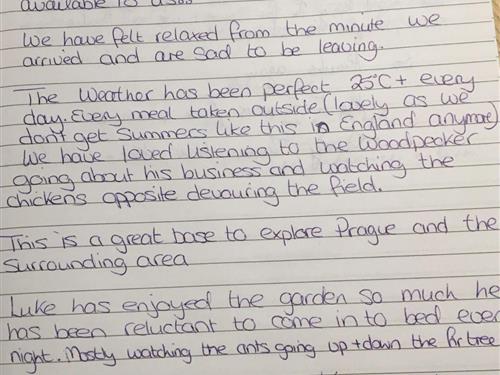 available to
We have felt relaxed from the minute we
arrived and are sad to be leaving.
The weather has been perfect 25°C+ every
day. Every meal taken outside (lovely as we
don't get summers like this in England anymore)
We have loved listening to the Woodpecker
going about his business and watching the
chickens opposite devouring the field.
This is a great base to explore Prague and the
surrounding area
Luke has enjoyed the garden so much he
has been reluctant to come in to bed every
night. Mostly watching the ants going up + down the fir tree